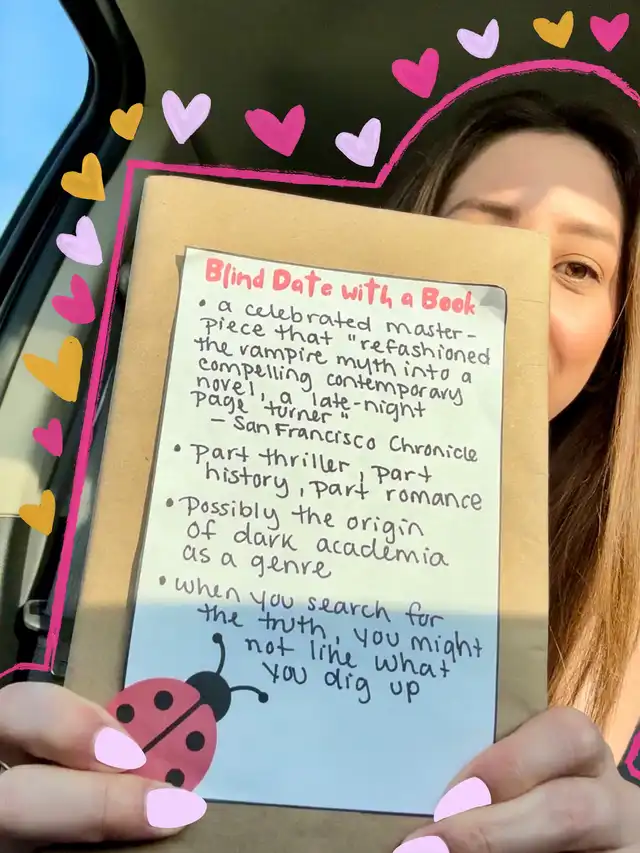 Blind Date with a Book
• a celebrated master-
piece that "refashioned
the vampire myth into a
compelling contemporary
novel, a late-night
page turner"
– San Francisco Chronicle
• Part thriller, part
history, part romance
• Possibly the origin
of dark academia
as a genre
• when you search for
the truth, you might
not like what
you dig up